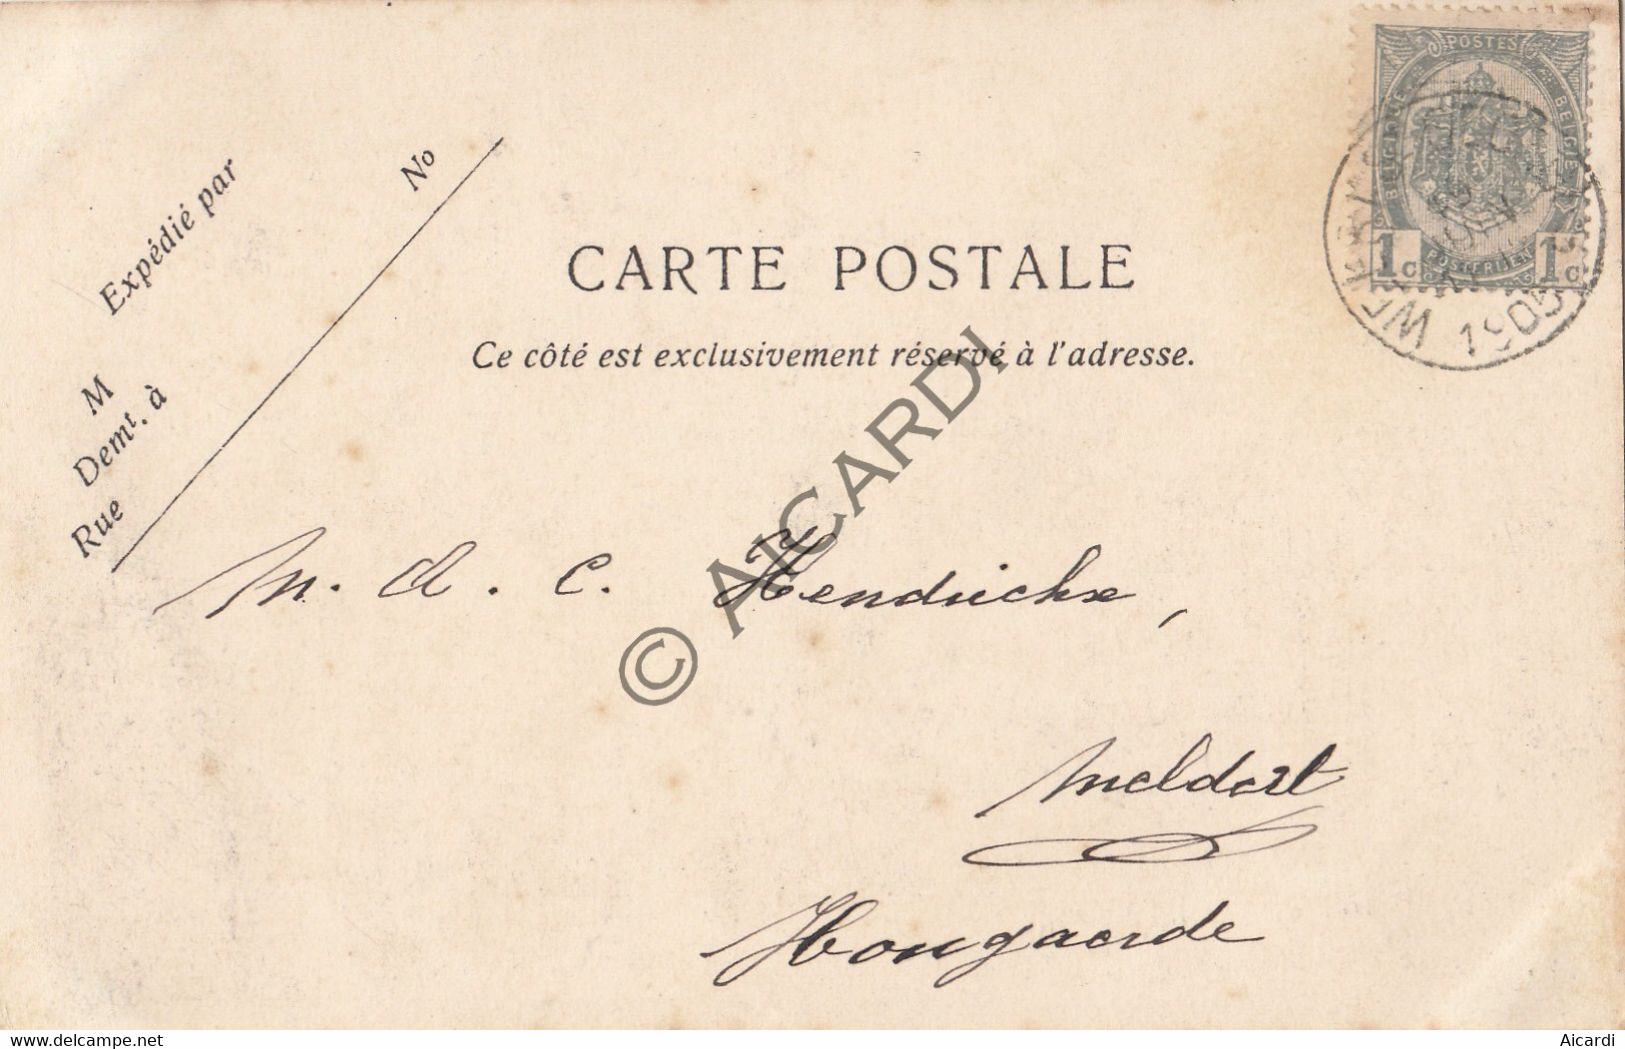 Expédié par
No
M
Demt. à
Rue
CARTE POSTALE
Ce côté est exclusivement réservé à l'adresse.
POSTES
BELGIQUE
BELGIË
1c
1c
1905
M. A. C. Hendrickx,
Meldert
Hougaerde
© AICARDI
delcampe.net
Aicardi